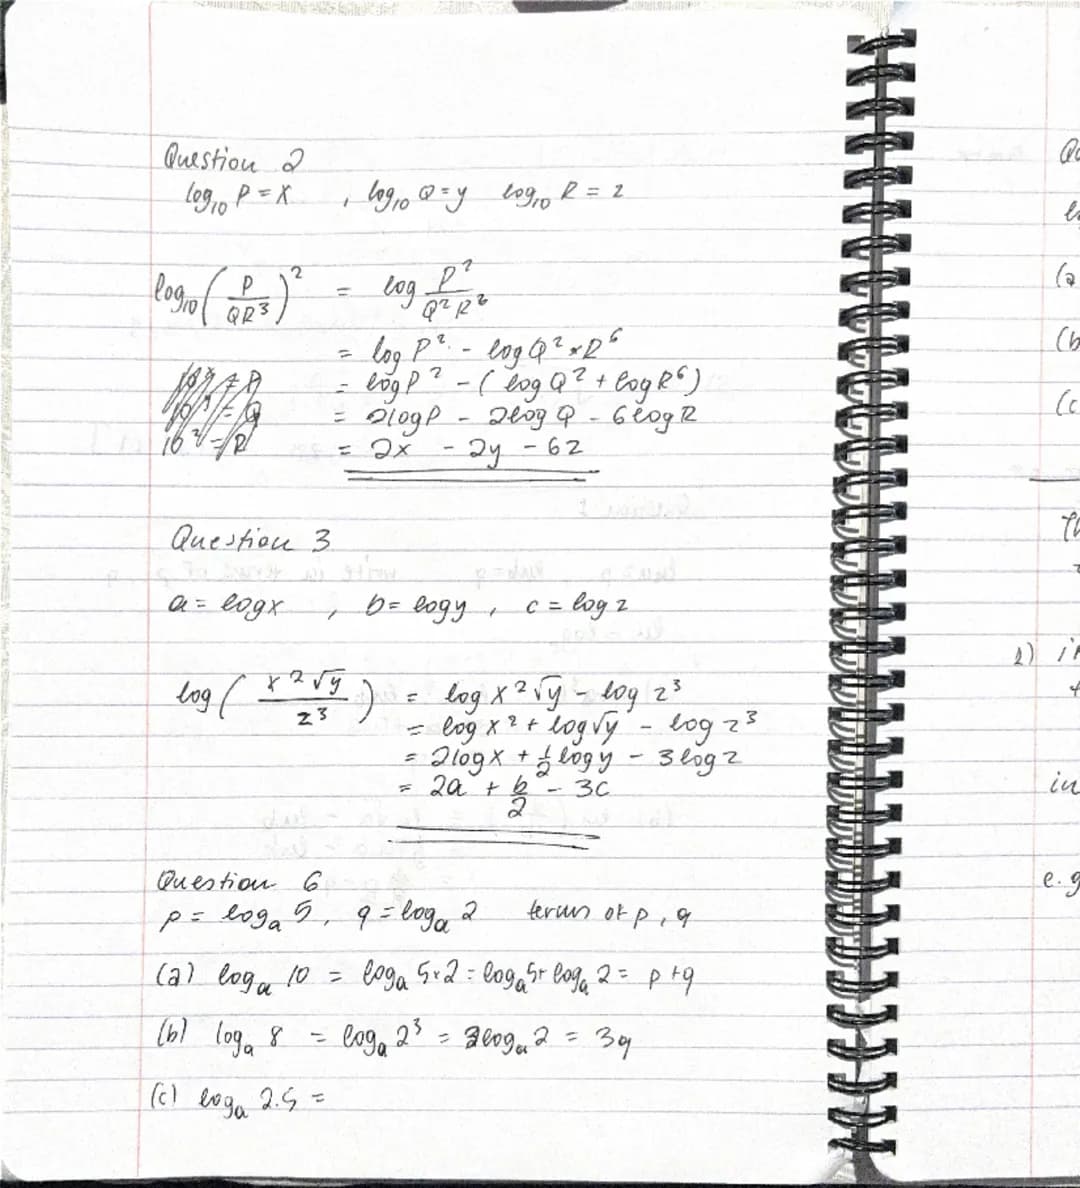 Question 2
log₁₀ P = x , log₁₀ Q = y log₁₀ R = z
log₁₀ (P/QR³)² = log P²/Q²R⁶
= log P² - log Q² × R⁶
= log P² - (log Q² + log R⁶)
= 2 log P - 2 log Q - 6 log R
= 2x - 2y - 6z
Question 3
a = log x , b = log y , c = log z
log (x²√y/z³) = log x²√y - log z³
= log x² + log √y - log z³
= 2 log x + ½ log y - 3 log z
= 2a + b/2 - 3c
Question 6
p = logₐ 5, q = logₐ 2 terms of p, q
(a) logₐ 10 = logₐ 5×2 = logₐ 5 + logₐ 2 = p + q
(b) logₐ 8 = logₐ 2³ = 3 logₐ 2 = 3q
(c) logₐ 2.5 =
(a
(b
(c
1) in
in
e.g